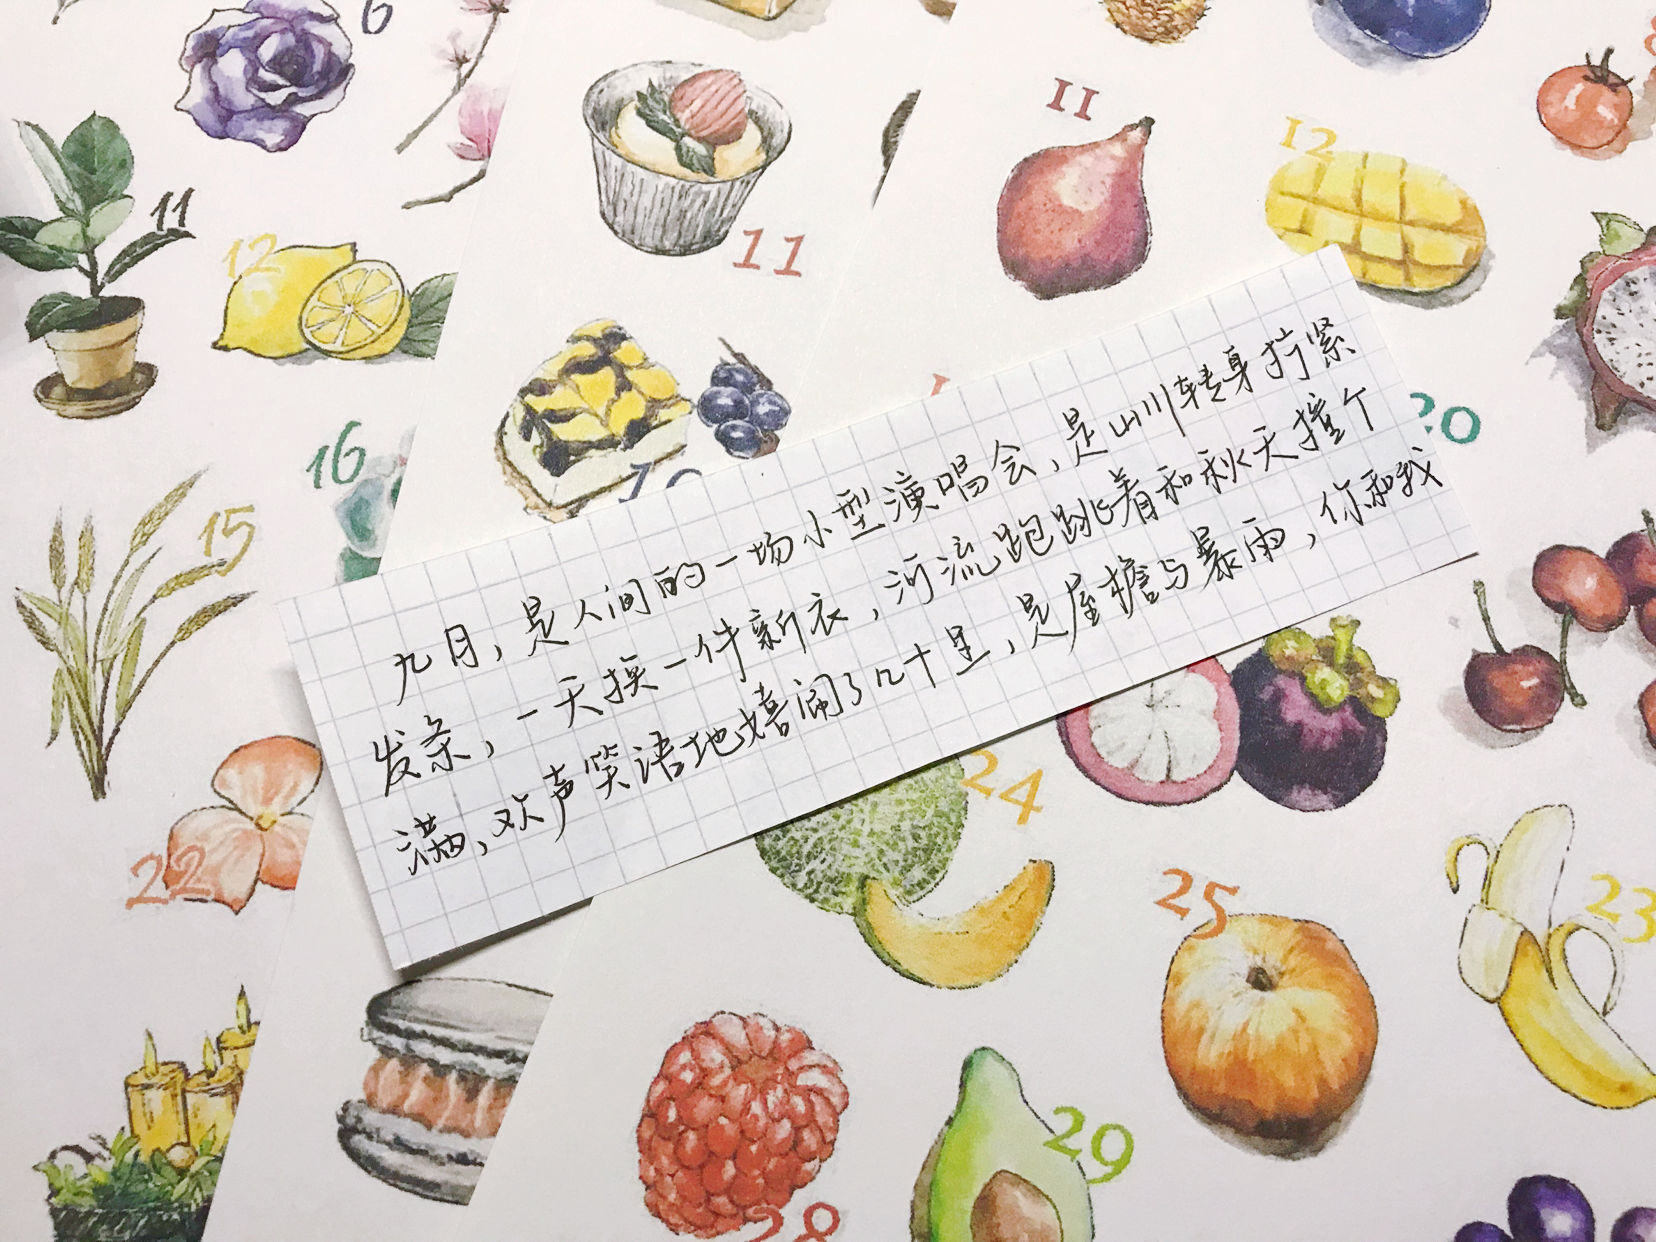 6
11
11
12
8
11
12
16
20
15
九月，是人间的一场小型演唱会，是山川转身拧紧
发条，一天换一件新衣，河流跑跳着和秋天撞个
满，欢声笑语地嬉闹了几十里，是屋檐与暴雨，你和我
24
22
25
23
29
28